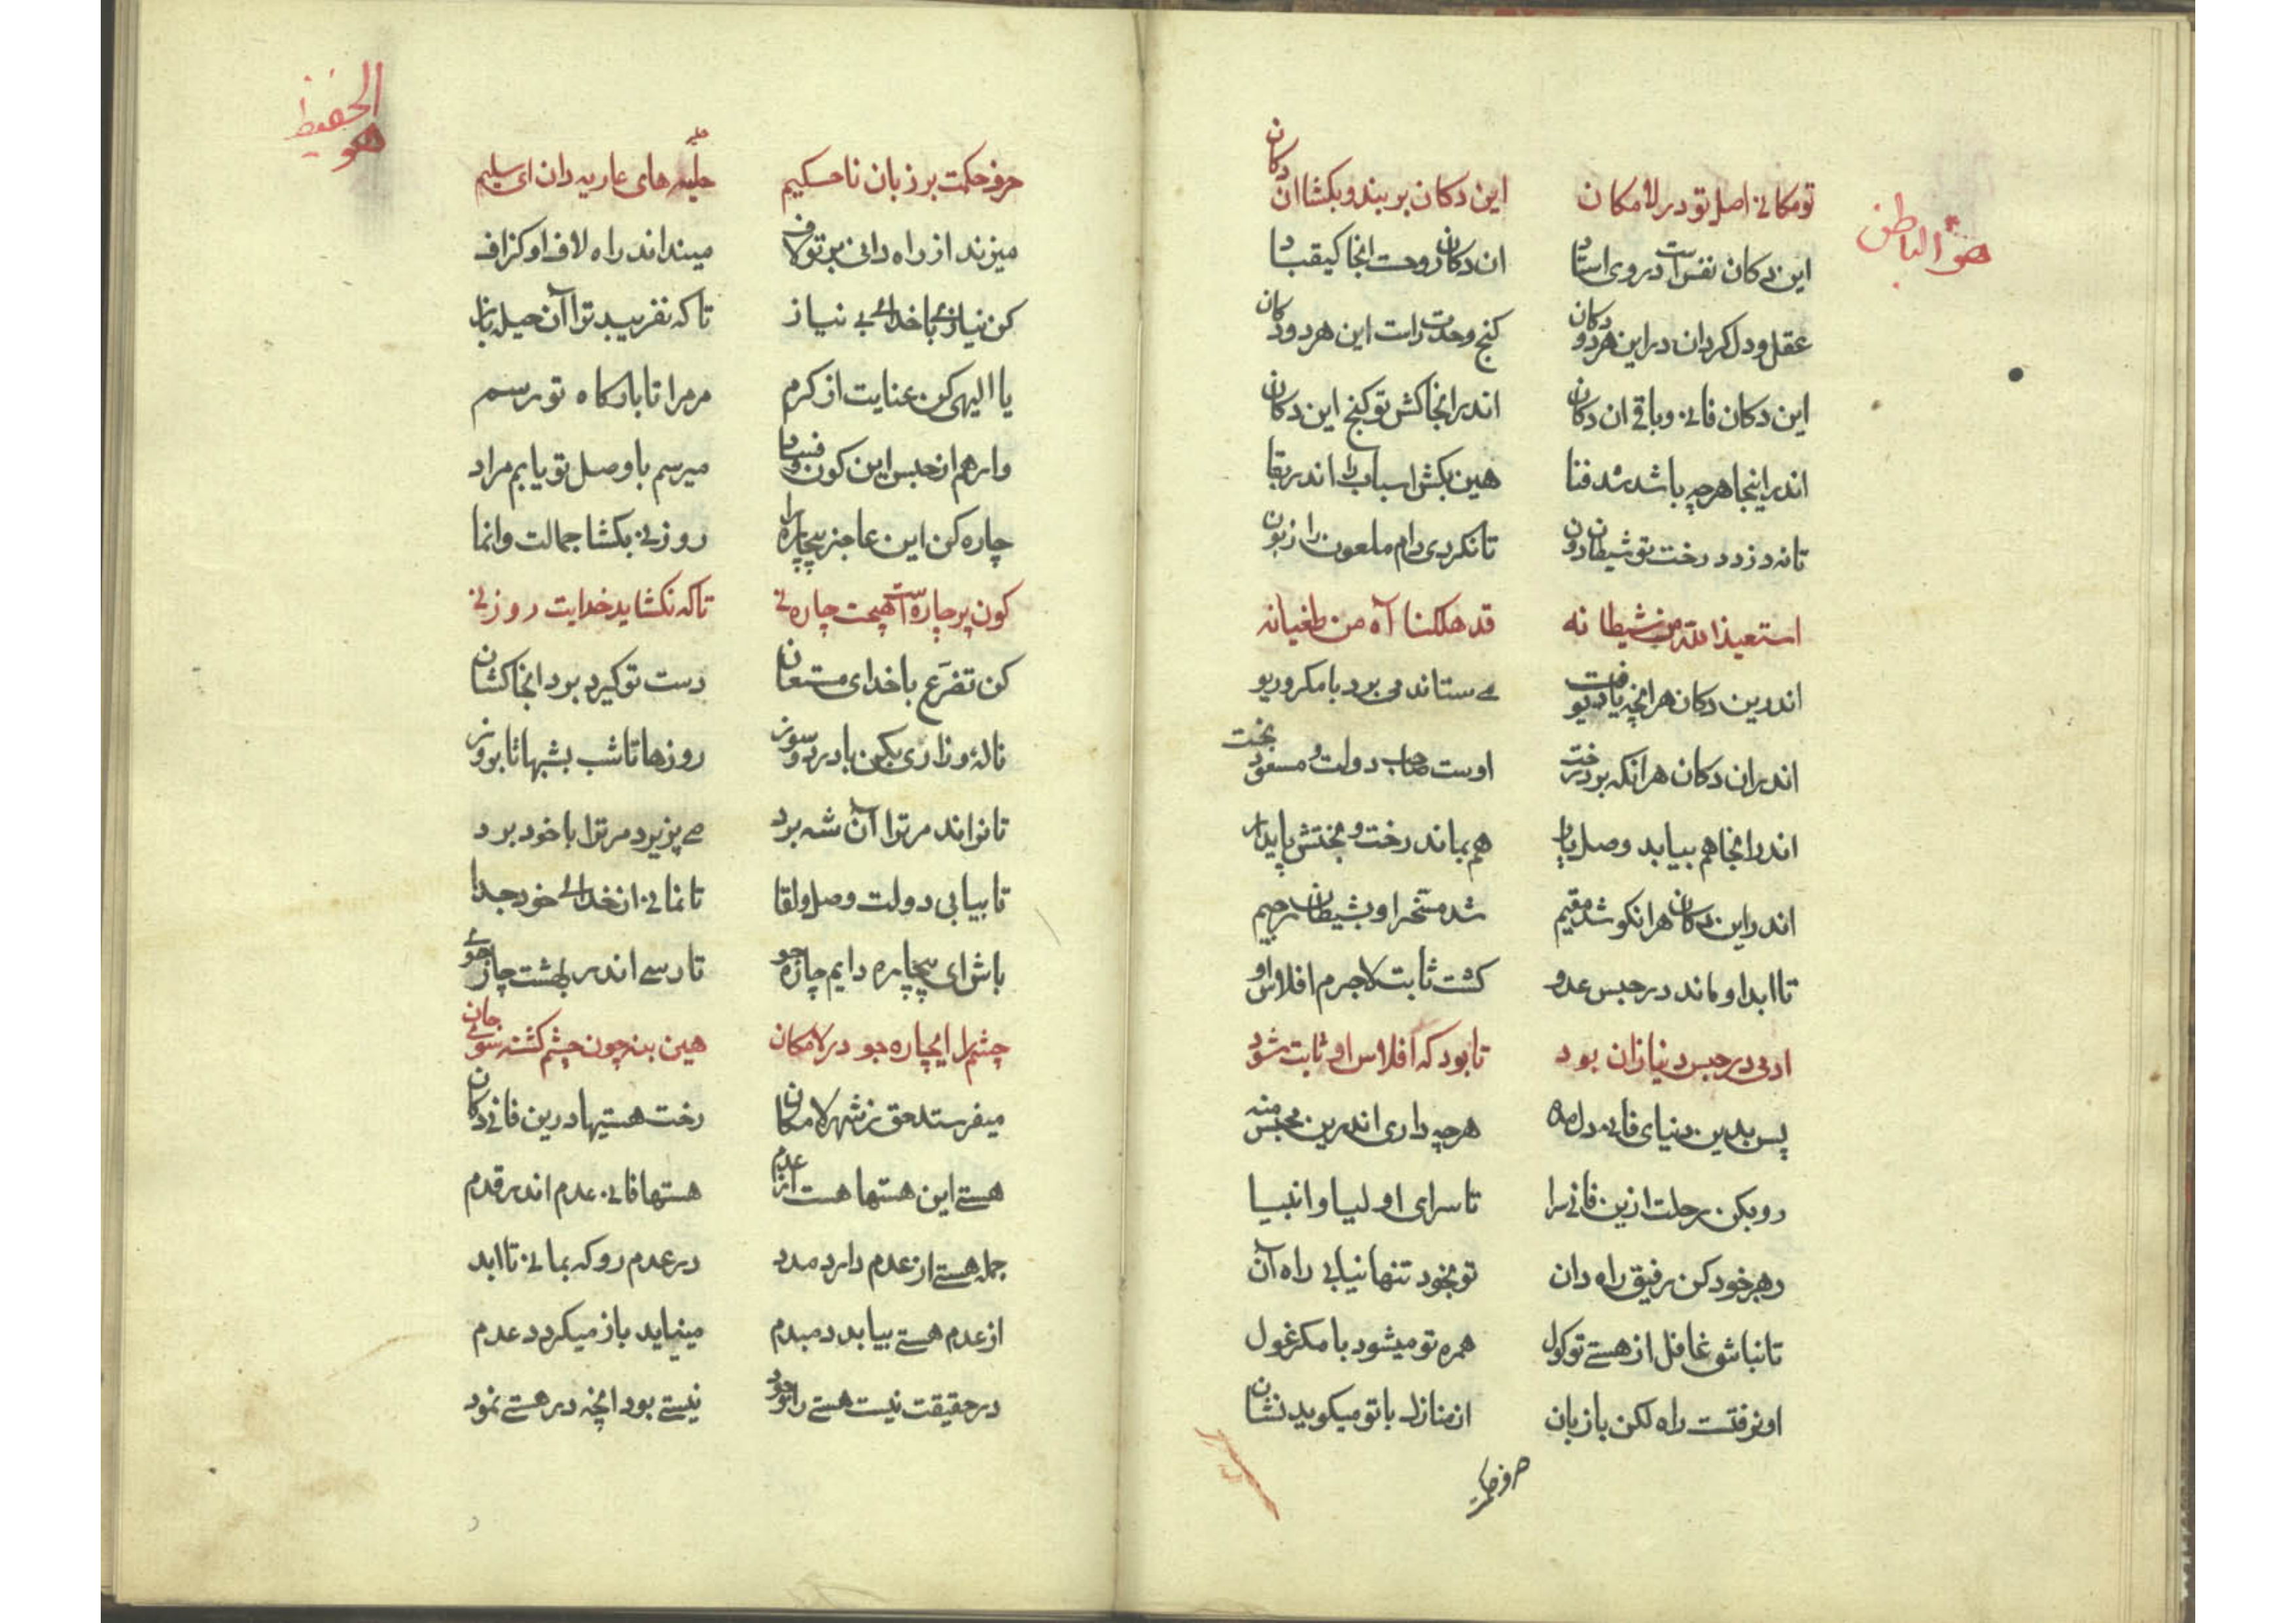 هو الباطن
تو مکانی اصل تو در لامکان این دکان بربند و بکشا ان دکان
این دکان نفس است در وی اوستاد ان دکان روحت انجا کیقباد
عقل و دل کردان در این هر دو دکان کنج وحدت راست این هر دو دکان
این دکان فانی و باقی ان دکان اندر انجا کش تو کنج این دکان
اندر اینجا هرچه باشد شد فنا هین بکش اسباب را اندر بقا
تا نه دزدد رخت تو شیطان دون تا نکردی دام ملعون را زبون
استعیذ الله من شیطانه قد هلکنا آه من طغیانه
اندرین دکان هر انچه یافت دیو می ستاند می برد با مکر و ریو
اندران دکان هر انکه بود رخت اوست صاحب دولت و مسعود بخت
اندر انجا هم بیابد وصل یار هم بماند رخت و بختش پایدار
اندر این دکان هر انکو شد مقیم شد مسخر او بشیطان رجیم
تا ابد او ماند در حبس عدو کشت ثابت لاجرم افلاس او
ادمی در حبس دنیا زان بود تا بود که افلاس او ثابت شود
پس بدین دنیای فانی دل مده هرچه داری اندرین محبس منه
رو بکن رحلت ازین فانی سرا تا سرای اولیا و انبیا
رهبر خود کن رفیق راه دان تو بخود تنها نیابی راه آن
تا نباشی غافل از هستی تو کول همره تو میشود با مکر غول
او نرفتست راه لکن با زبان از منازل با تو میکوید نشان
حرف حکمت
الحفیظ
هو
حرف حکمت بر زبان ناحکیم حلیه های عاریه دان ای سلیم
میزند از راه دانی بر تو لاف میندانند راه لاف او کزاف
کن نیازی با خدای بی نیاز تا که نفریبد ترا آن حیله باز
یا الهی کن عنایت از کرم مر مرا تا بارکاه تو رسم
وارهم از حبس این کون و فساد میرسم با وصل تو یابم مراد
چاره کن این عاجز بیچاره را روزنی بکشا جمالت وانما
کون پر چاره است هیچت چاره نی تا که نکشاید خدایت روزنی
کن تضرع با خدای مستعان دست تو کیرد برد انجا کشان
نالهٔ و زاری بکن با درد و سوز روزها تا شب بشبها تا بروز
تا نواند مر ترا آن شه برد می پزیرد مر ترا با خود برد
تا بیابی دولت وصل و لقا تا نمانی از خدای خود جدا
باش ای بیچاره دایم چاره جو تا رسی اندر بهشت چار جوی
چشم را ای چاره جو در لامکان هین بنه چون چشم کشته سوی جان
میفرستد حق ز شهر لامکان رخت هستیها درین فانی دکان
هستی این هستها هست از عدم هستها فانی عدم اندر قدم
جمله هستی از عدم دارد مدد در عدم رو که بمانی تا ابد
از عدم هستی بیابد دمبدم مینیاید باز میکردد عدم
در حقیقت نیست هستی را وجود نیستی بود انچه در هستی نمود